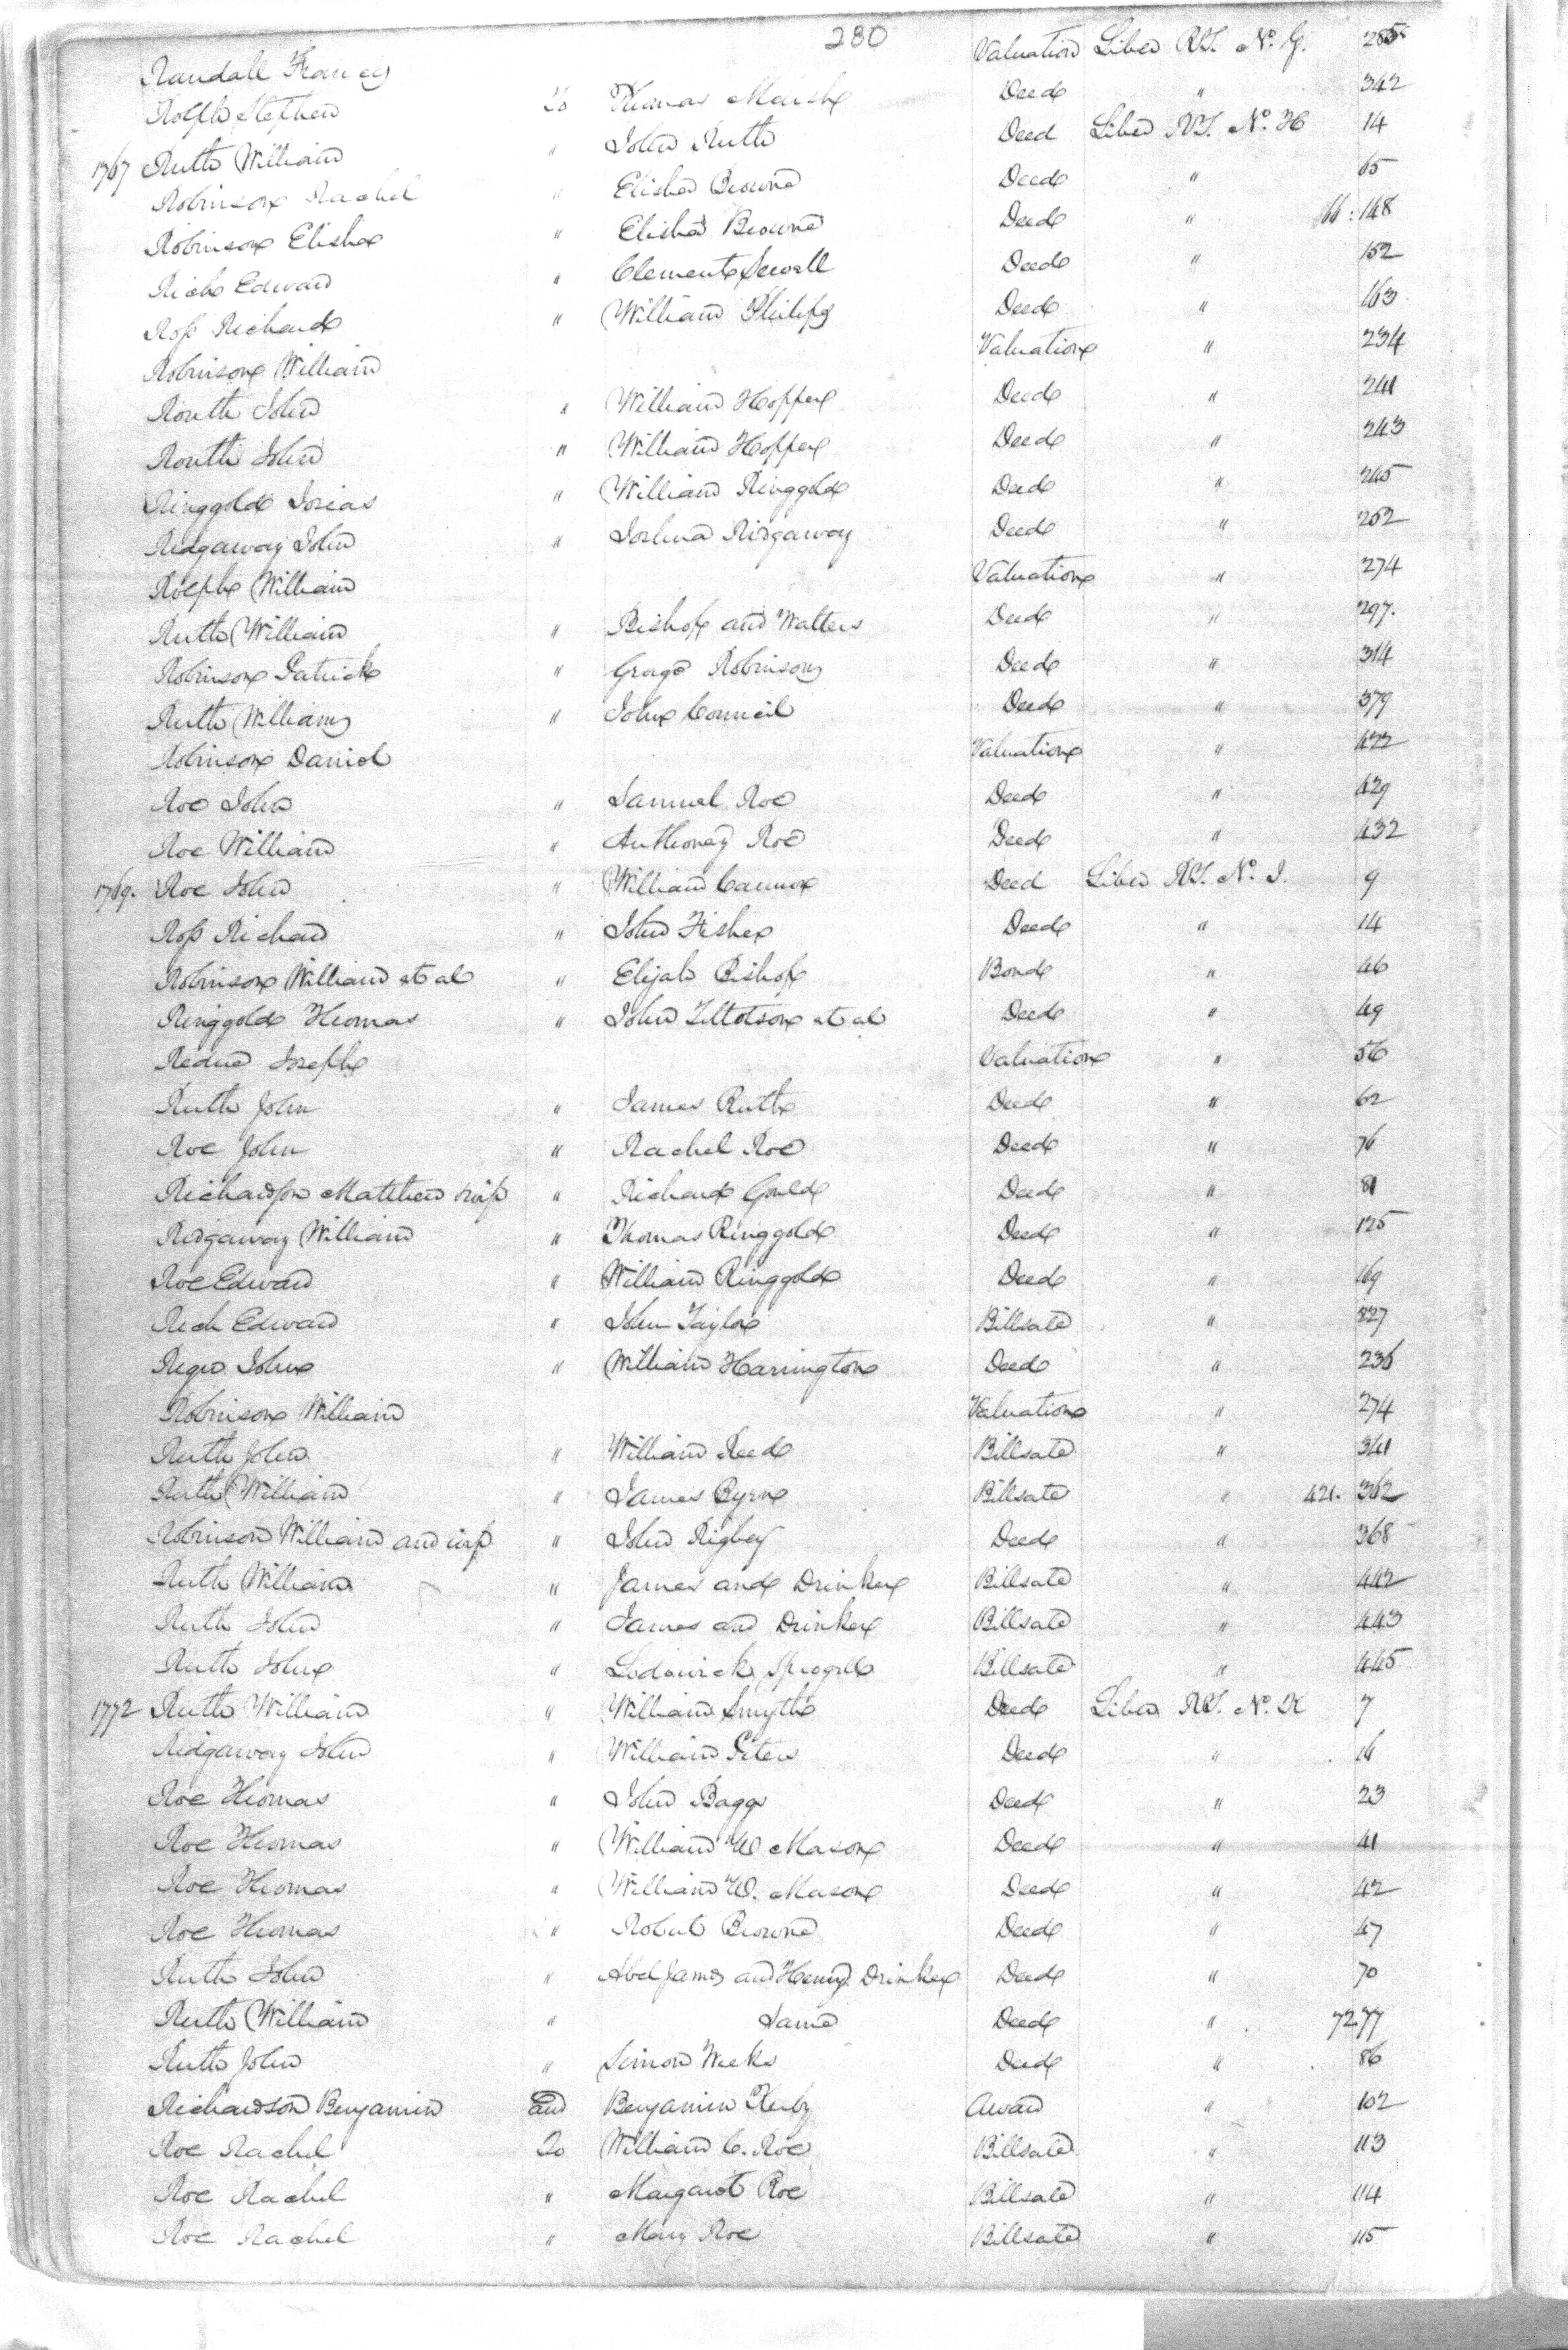 280
Randall Francis Valuation Liber RT. No. G. 285
Rolph Stephen To Thomas Marsh Deed " 342
1767 Ruth William " John Ruth Deed Liber RT. No. H 14
Robinson Rachel " Elisha Browne Deed " 65
Robinson Elisha " Elisha Browne Deed " 66:148
Rich Edward " Clement Sewell Deed " 152
Ross Richard " William Philips Deed " 163
Robinson William Valuation " 234
Routh John " William Hopper Deed " 241
Routh John " William Hopper Deed " 243
Ringgold Josias " William Ringgold Deed " 245
Ridgaway John " Joshua Ridgaway Deed " 252
Rolph William Valuation " 274
Ruth William " Bishop and Walters Deed " 297.
Robinson Patrick " Grage Robinson Deed " 314
Ruth William " John Council Deed " 379
Robinson Daniel Valuation " 422
Roe John " Samuel Roe Deed " 429
Roe William " Anthoney Roe Deed " 432
1769. Roe John " William Cannon Deed Liber RT. No. I. 9
Ross Richard " John Fisher Deed " 14
Robinson William et al " Elijah Bishop Bond " 46
Ringgold Thomas " John Tillotson et al Deed " 49
Redue Joseph Valuation " 56
Ruth John " James Ruth Deed " 62
Roe John " Rachel Roe Deed " 76
Richardson Matthew " Richard Gould Deed " 81
Ridgaway William " Thomas Ringgold Deed " 125
Roe Edward " William Ringgold Deed " 169
Rech Edward " John Taylor Billsale " 227
John " William Harrington Deed " 236
Robinson William Valuation " 274
Ruth John " William Reed Billsale " 341
Ruth William " James Byrn Billsale " 421. 362
Robinson William and " John Rigbey Deed " 368
Ruth William " James and Drinker Billsale " 442
Ruth John " James and Drinker Billsale " 443
Ruth John " Lodowick Billsale " 445
1772 Ruth William " William Smyth Deed Liber RT. No. K 7
Ridgaway John " William Peters Deed " 16
Roe Thomas " John Baggs Deed " 23
Roe Thomas " William W Mason Deed " 41
Roe Thomas " William W. Mason Deed " 42
Roe Thomas " Robert Browne Deed " 47
Ruth John " Abel James and Henry Drinker Deed " 70
Ruth William " Same Deed " 72.77
Ruth John " Simon Weeks Deed " 86
Richardson Benjamin and Benjamin Kerby Award " 102
Roe Rachel To William C. Roe Billsale " 113
Roe Rachel " Margaret Roe Billsale " 114
Roe Rachel " Mary Roe Billsale " 115